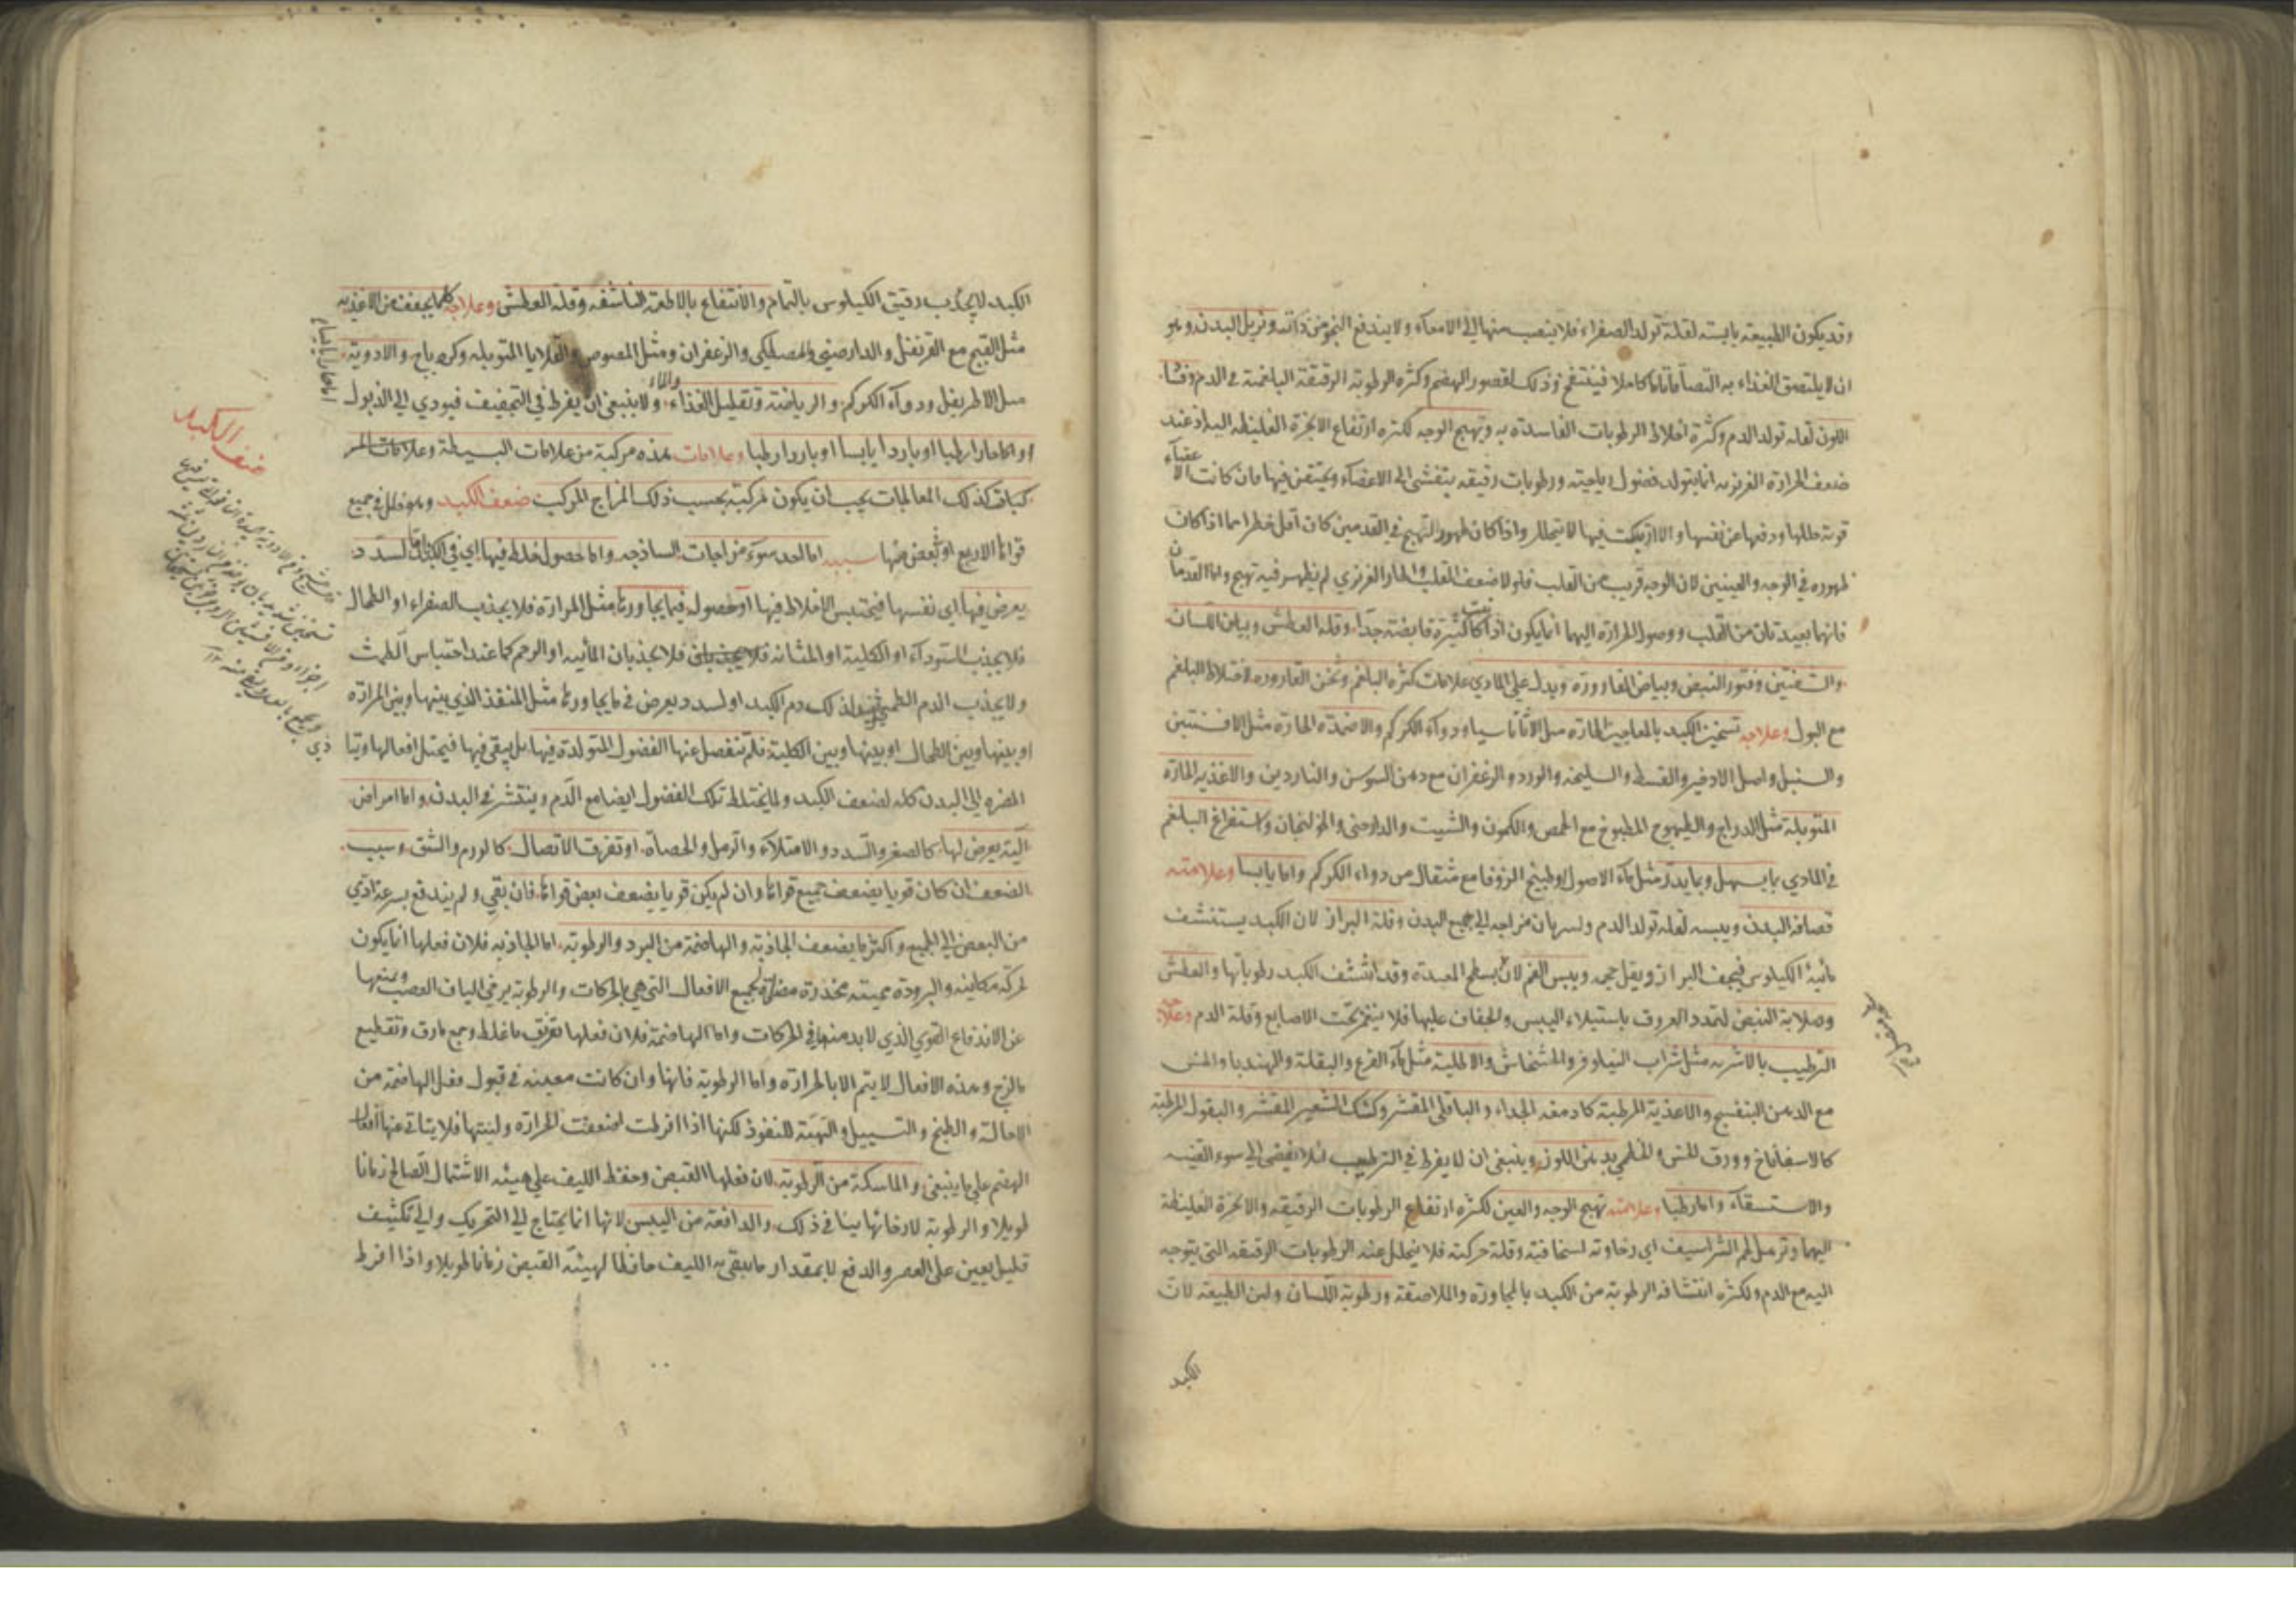 وقد يكون الطبيعة يابسة لقلة تولد الصفراء فلا ينصب منها الى الامعاء ولا يندفع النجو من ذاته وتربل البدن وهو
ان لا يلتصق الغذاء به التصاقا تاما كاملا فينتفخ وذلك لقصور الهضم وكثرة الرطوبة الرقيقة البلغمية في الدم وفساد
اللون لقلة تولد الدم وكثرة اختلاط الرطوبات الفاسدة به وتهيج الوجه لكثرة ارتفاع الابخرة الغليظة اليه اذ عند
ضعف الحرارة الغريزية انما يتولد فضول رياحية ورطوبات رقيقة يتفشى الى الاعضاء ويحتقن فيها فان كانت الاعضاء
قوية حللها ودفعها عن نفسها والا ارتبكت فيها لا يتحلل واذا كان ظهور التهيج في القدمين كان اقل خطرا مما اذا كان
ظهوره في الوجه والعينين لان الوجه قريب من القلب فلولا ضعف القلب والحار الغريزي لم يظهر فيه تهيج واما القدمان
فانهما بعيدتان من القلب ووصول الحرارة اليهما انما يكون اذا كانت كثيرة فايضة جدا وقلة العطش وبياض اللسان
والشفتين وفتور النبض وبياض القارورة ويدل على المادي علامات كثرة البلغم وثخن القارورة لاختلاط البلغم
مع البول وعلاجه تسخين الكبد بالمعاجين الحارة مثل الاثاناسيا ودواء الكركم والاضمدة الحارة مثل الافسنتين
والسنبل واصل الاذخر والقسط والسليخة والورد والزعفران مع دهن السوسن والناردين والاغذية الحارة
المتوبلة مثل الدراج والطيهوج المطبوخ مع الحمص والكمون والشبت والدارصيني والخولنجان واستفراغ البلغم
في المادي بما يسهل وبما يدر مثل ماء الاصول وطبيخ الزوفا مع مثقال من دواء الكركم واما يابسا وعلامته
قصافة البدن ويبسه لقلة تولد الدم ولسريان مزاجه الى جميع البدن وقلة البراز لان الكبد يستنشف
مائية الكيلوس فيجف البراز ويقل حجمه ويبس الفم لانه بسطح المعدة وقد انتشف الكبد رطوباتها والعطش
وصلابة النبض لتمدد العروق باستيلاء اليبس والجفاف عليها فلا ينغمز تحت الاصابع وقلة الدم وعلاجه
الترطيب بالاشربة مثل شراب النيلوفر والخشخاش والاطلية مثل ماء القرع والبقلة والهندبا والخس
مع الدهن البنفسج والاغذية المرطبة كادمغة الجداء والباقلى المقشر وكشك الشعير المقشر والبقول المرطبة
كالاسفاناخ وورق الخس والخطمي بدهن اللوز وينبغي ان لا يفرط في الترطيب لئلا يفضى الى سوء القنية
والاستسقاء واما رطبا وعلامته تهيج الوجه والعين لكثرة ارتفاع الرطوبات الرقيقة والابخرة الغليظة
اليهما وترهل لحم الشراسيف اي رخاوته لسخافته وقلة حركته فلا يتحلل عنه الرطوبات الرقيقة التي يتوجه
اليه مع الدم ولكثرة انتشافه الرطوبة من الكبد بالمجاورة والملاصقة ورطوبة اللسان ولين الطبيعة لان
الكبد
الكبد لا يجذب رقيق الكيلوس بالتمام والانتفاع بالاطعمة الناشفة وقلة العطش وعلاجه كلما يجفف من الاغذية
مثل القبج مع القرنفل والدارصيني والمصطكى والزعفران ومثل المصوص والقلايا المتوبلة وكردباج والادوية
مثل الاطريفل ودواء الكركم والرياضة وتقليل الغذاء والماء ولا ينبغي ان يفرط في التجفيف فيودي الى الذبول
اما حارا يابسا
او اما حارا رطبا او باردا يابسا او باردا رطبا وعلامات هذه مركبة من علامات البسيطة وعلامات المر
كبات كذلك المعالجات يجب ان يكون مركبة بحسب ذلك المزاج المركب ضعف الكبد وهو خلل في جميع
قواها الاربع او بعض منها سببه اما احد سوء مزاجات الساذجة واما حصول خلط فيها اي في الكبد اما لسدد
يعرض فيها اي نفسها فيحتبس الاخلاط فيها او حصوله فيما يجاورها مثل المرارة فلا يجذب الصفراء او الطحال
فلا يجذب السوداء او الكلية او المثانة فلا يجذبان المائية او الرحم كما عند احتباس الطمث
ولا يجذب الدم الطمثي فيفسد لذلك دم الكبد او لسدد يعرض في ما يجاورها مثل المنفذ الذي بينها وبين المرارة
او بينها وبين الطحال او بينها وبين الكلية فلم تنفصل عنها الفضول المتولدة فيها بل يبقى فيها فيختل افعالها وتبا
المضرة الى البدن كله لضعف الكبد ولما يختلط تلك الفضول ايضا مع الدم وينتشر في البدن واما امراض
آلية يعرض لها كالصغر والسدد والامتلاء والرمل والحصاة او تفرق الاتصال كالورم والشق وسبب
الضعف ان كان قويا يضعف جميع قواها وان لم يكن قويا يضعف بعض قواها فان بقي ولم يندفع بسرعة تادي
من البعض الى الجميع واكثر ما يضعف الجاذبة والهاضمة من البرد والرطوبة اما الجاذبة فلان فعلها انما يكون
لحركة مكانية والبرودة مميتة مخدرة مضادة لجميع الافعال التي هي بالحركات والرطوبة يرخي الياف العصب ويمنعها
عن الاندفاع القوي الذي لا بد منه في الحركات واما الهاضمة فلان فعلها تفريق ما غلظ وجمع ما رق وتقطيع
ما لزج وهذه الافعال لا يتم الا بالحرارة واما الرطوبة فانها وان كانت معينة في قبول فعل الهاضمة من
الاحالة والطبخ والتسييل والتهيئة للنفوذ لكنها اذا افرطت اضعفت الحرارة ولينتها فلا يتاتى عنها افعال
الهضم على ما ينبغي والماسكة من الرطوبة لان فعلها القبض وحفظ الليف على هيئة الاشتمال الصالح زمانا
طويلا والرطوبة لارخائها ينافي ذلك والدافعة من اليبس لانها انما يحتاج الى التحريك والى تكثيف
قليل يعين على العصر والدفع لا بمقدار ما يبقى به الليف حافظا لهيئة القبض زمانا طويلا واذا افرط
ضعف الكبد